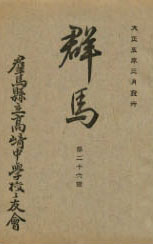 大正五年三月發行
群馬
第二十六號
群馬縣立高崎中學校々友會